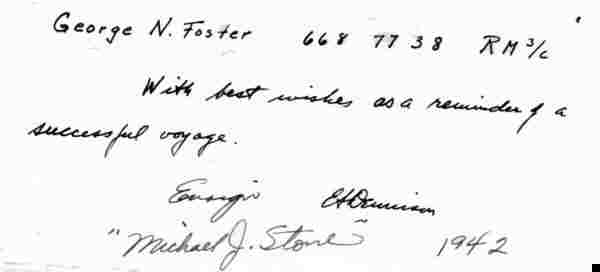 George N. Foster 668 77 38 RM 3/c
With best wishes as a reminder of a
successful voyage.
Ensign EHDennison
"Michael J. Stone" 1942